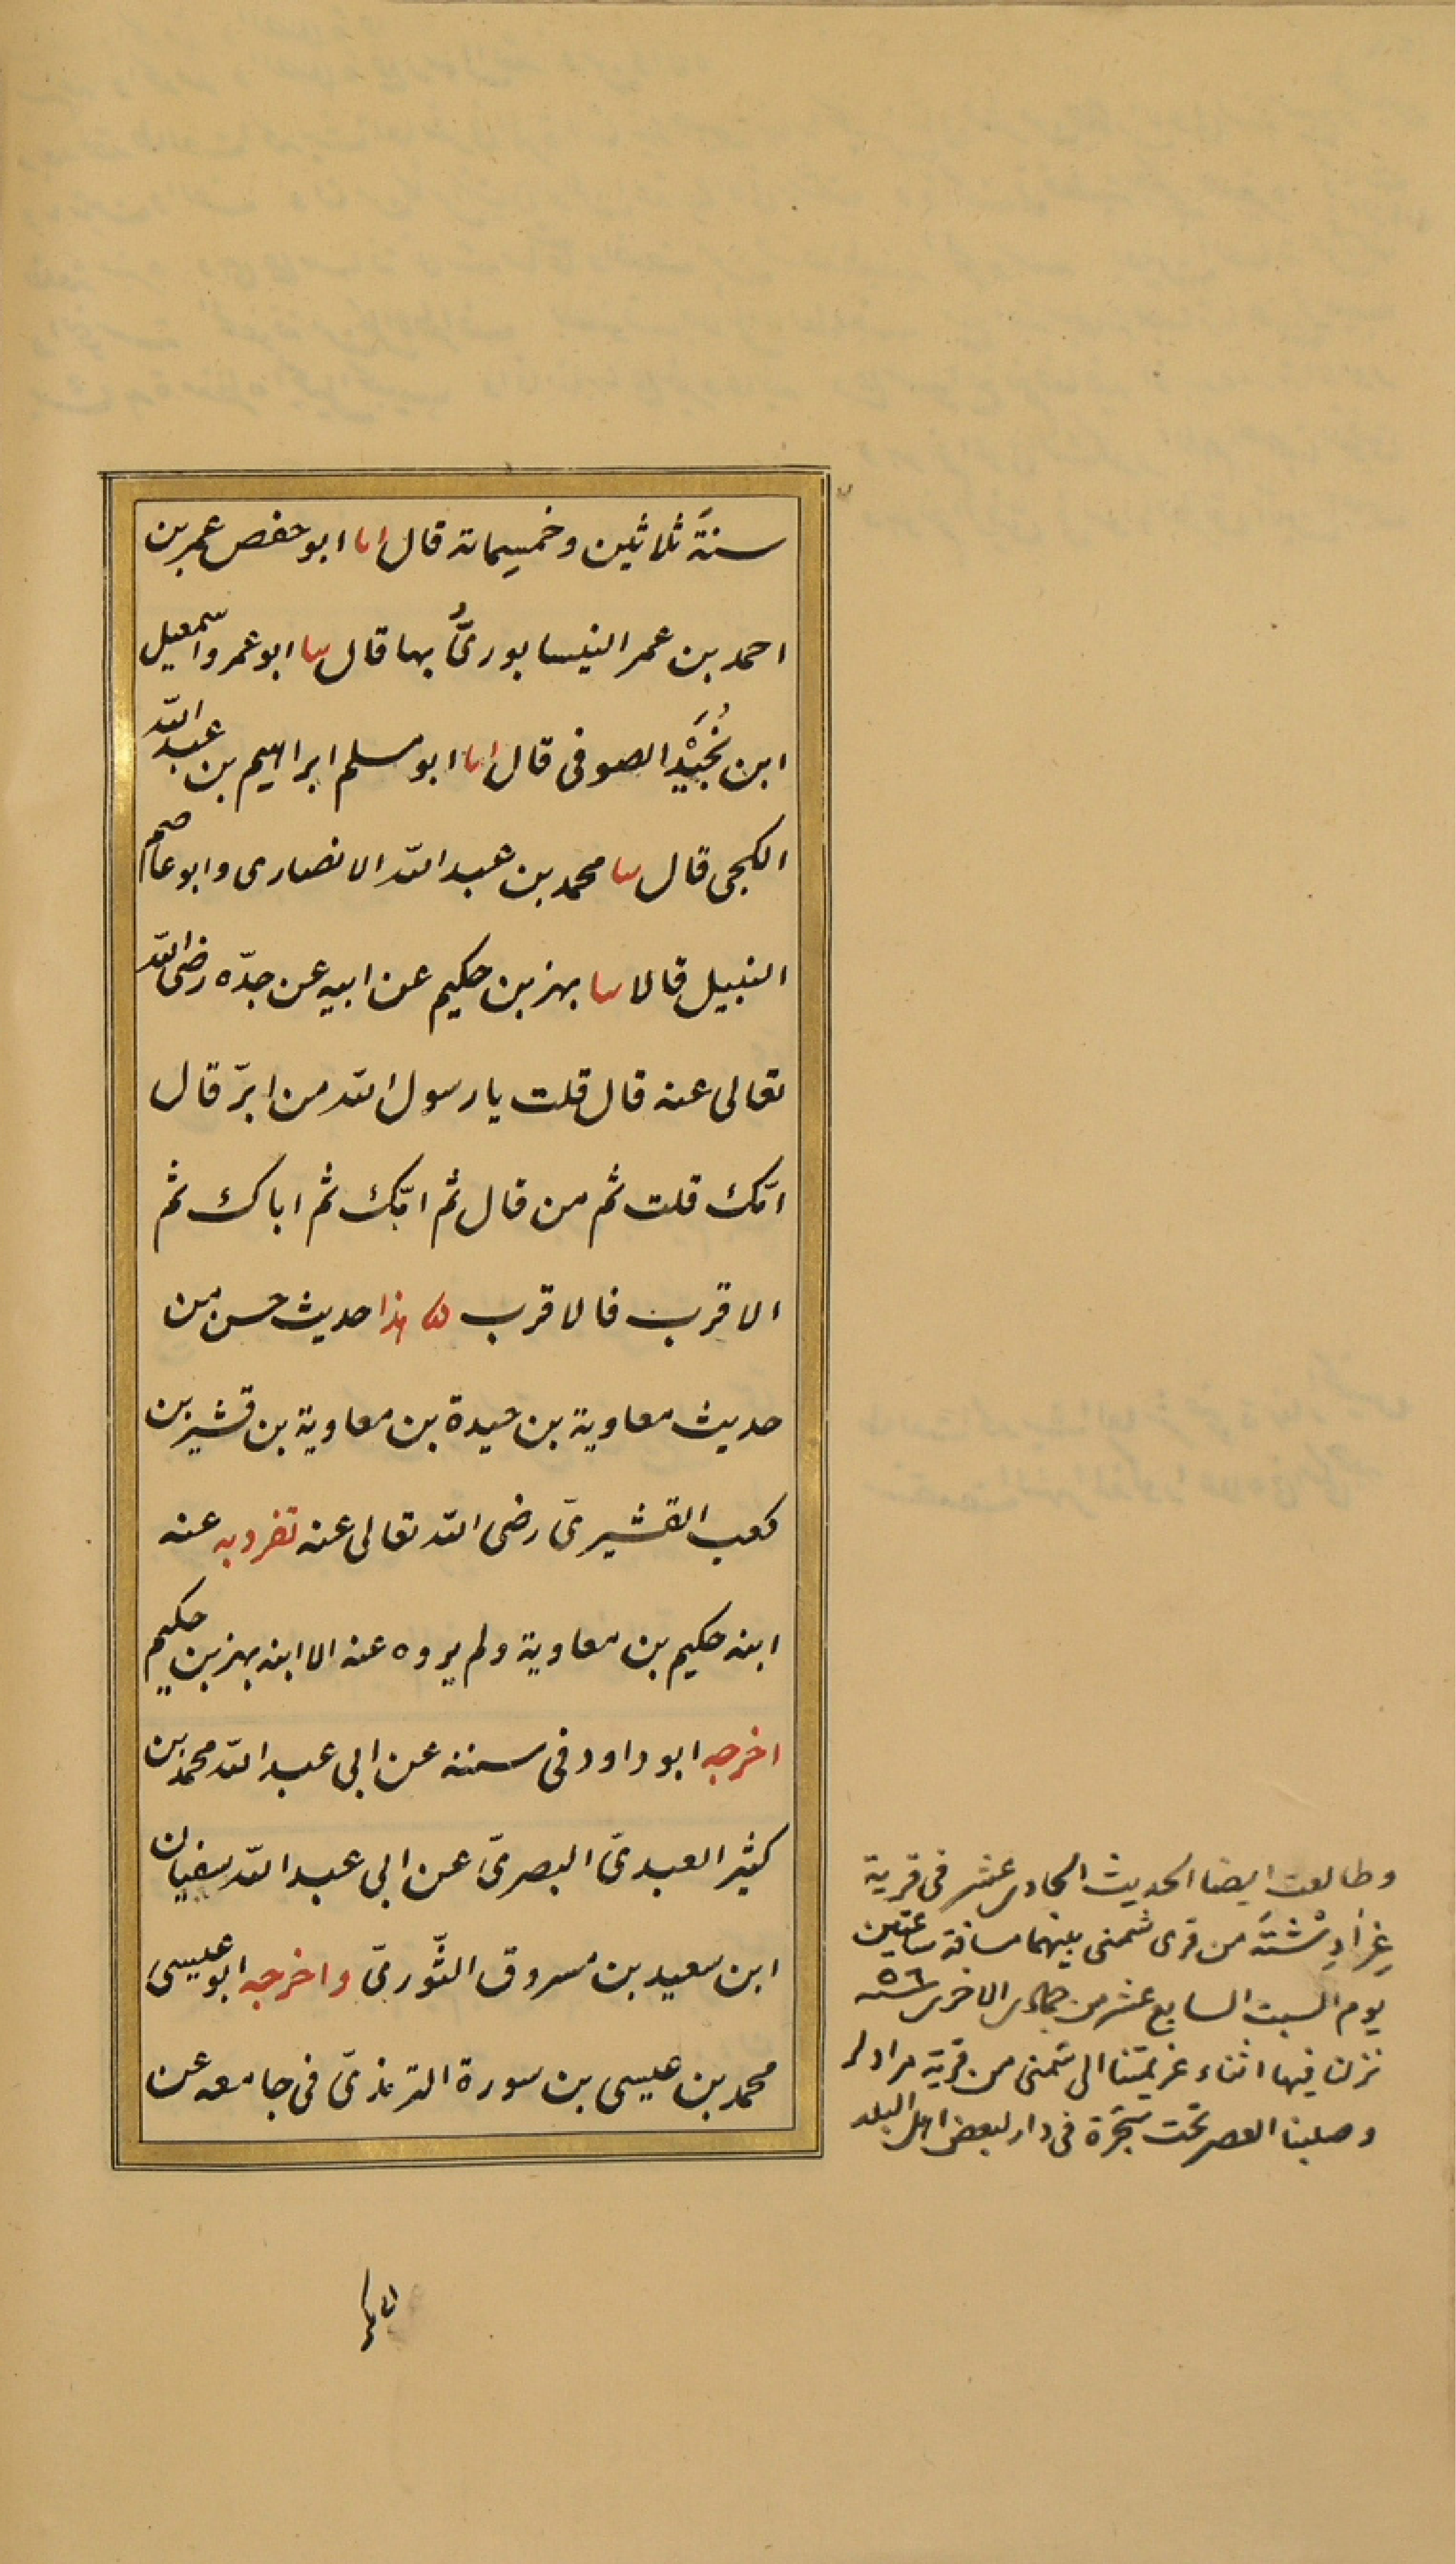 سنةَ ثلاثين وخمسيماتة قال انا ابو حفص عمر بن
احمد بن عمر النيسابورىُّ بها قال نا ابو عمرو اسمعيل
ابن نُجَيْد الصوفى قال انا ابو مسلم ابراهيم بن عبد الله
الكجى قال نا محمد بن عبد الله الانصارى وابو عاصم
النبيل قالا نا بهز بن حكيم عن ابيه عن جدّه رضى الله
تعالى عنه قال قلت يا رسول الله من ابرّ قال
امّك قلت ثم من قال ثم امّك ثم اباك ثم
الاقرب فالاقرب هذا حديث حسن من
حديث معاوية بن حيدة بن معاوية بن قشير بن
كعب القشيرىّ رضى الله تعالى عنه تفرد به عنه
ابنه حكيم بن معاوية ولم يروه عنه الا ابنه بهز بن حكيم
اخرجه ابو داود فى سننه عن ابى عبد الله محمد بن
كثير العبدىّ البصرىّ عن ابى عبد الله سفيان
ابن سعيد بن مسروق الثّورىّ واخرجه ابو عيسى
محمد بن عيسى بن سورة الترمذىّ فى جامعه عن
وطالعت ايضا الحديث الحادى عشر فى قرية
من قرى شمنى بينهما مسافة ساعتين
يوم السبت السابع عشر من جمادى الاخرى سنة ٥٦
نزلنا فيها اثناء عزيمتنا الى شمنى من قرية مرادلر
وصلينا العصر تحت شجرة فى دار لبعض اهل البلد